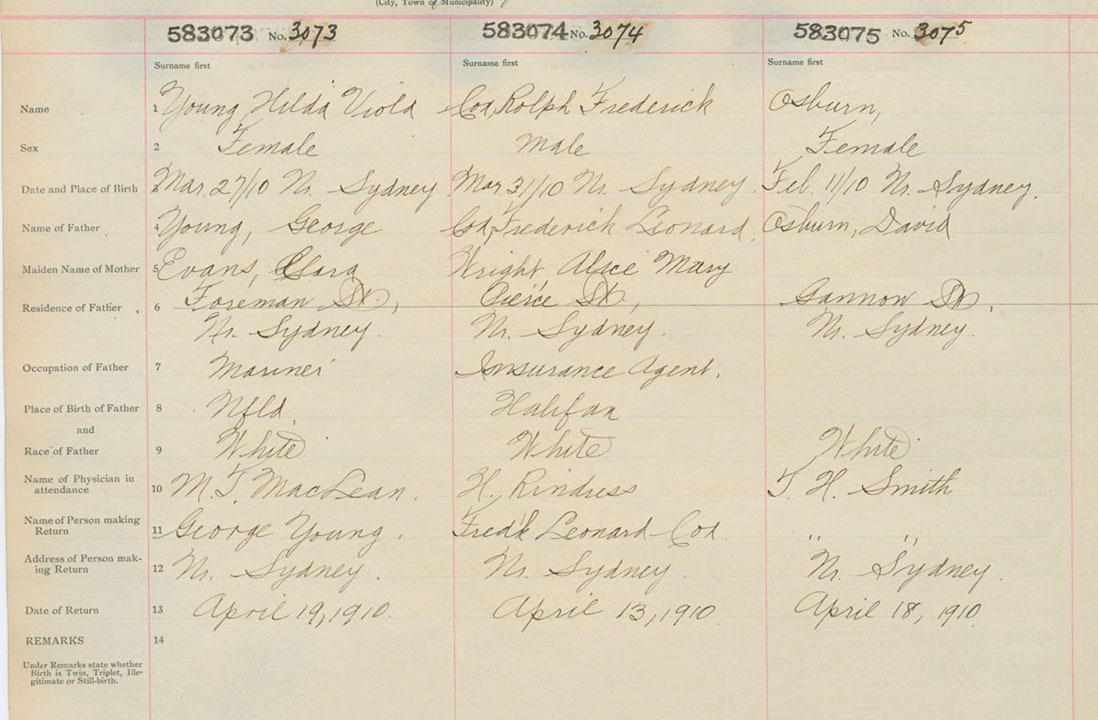 (City, Town or Municipality)
583073 No. 3073 583074 No. 3074 583075 No. 3075
Surname first Surname first Surname first
Name 1 Young, Hilda Viola Cox, Rolph Frederick Osburn,
Sex 2 Female Male Female
Date and Place of Birth 3 Mar. 27/10 Nr. Sydney Mar. 31/10 Nr. Sydney. Feb. 11/10 Nr. Sydney.
Name of Father 4 Young, George Cox, Frederick Leonard. Osburn, David
Maiden Name of Mother 5 Evans, Clara Wright, Alice Mary
Residence of Father 6 Foreman St., Pierce St., Gannon St.,
Nr. Sydney. Nr. Sydney. Nr. Sydney.
Occupation of Father 7 Mariner Insurance Agent.
Place of Birth of Father 8 Nfld. Halifax
and
Race of Father 9 White White White
Name of Physician in
attendance 10 M. T. MacLean. H. Rindress T. H. Smith
Name of Person making
Return 11 George Young. Fred'k Leonard Cox. " "
Address of Person mak-
ing Return 12 Nr. Sydney. Nr. Sydney. Nr. Sydney.
Date of Return 13 April 19, 1910. April 13, 1910. April 18, 1910.
REMARKS 14
Under Remarks state whether
Birth is Twin, Triplet, Ille-
gitimate or Still-birth.